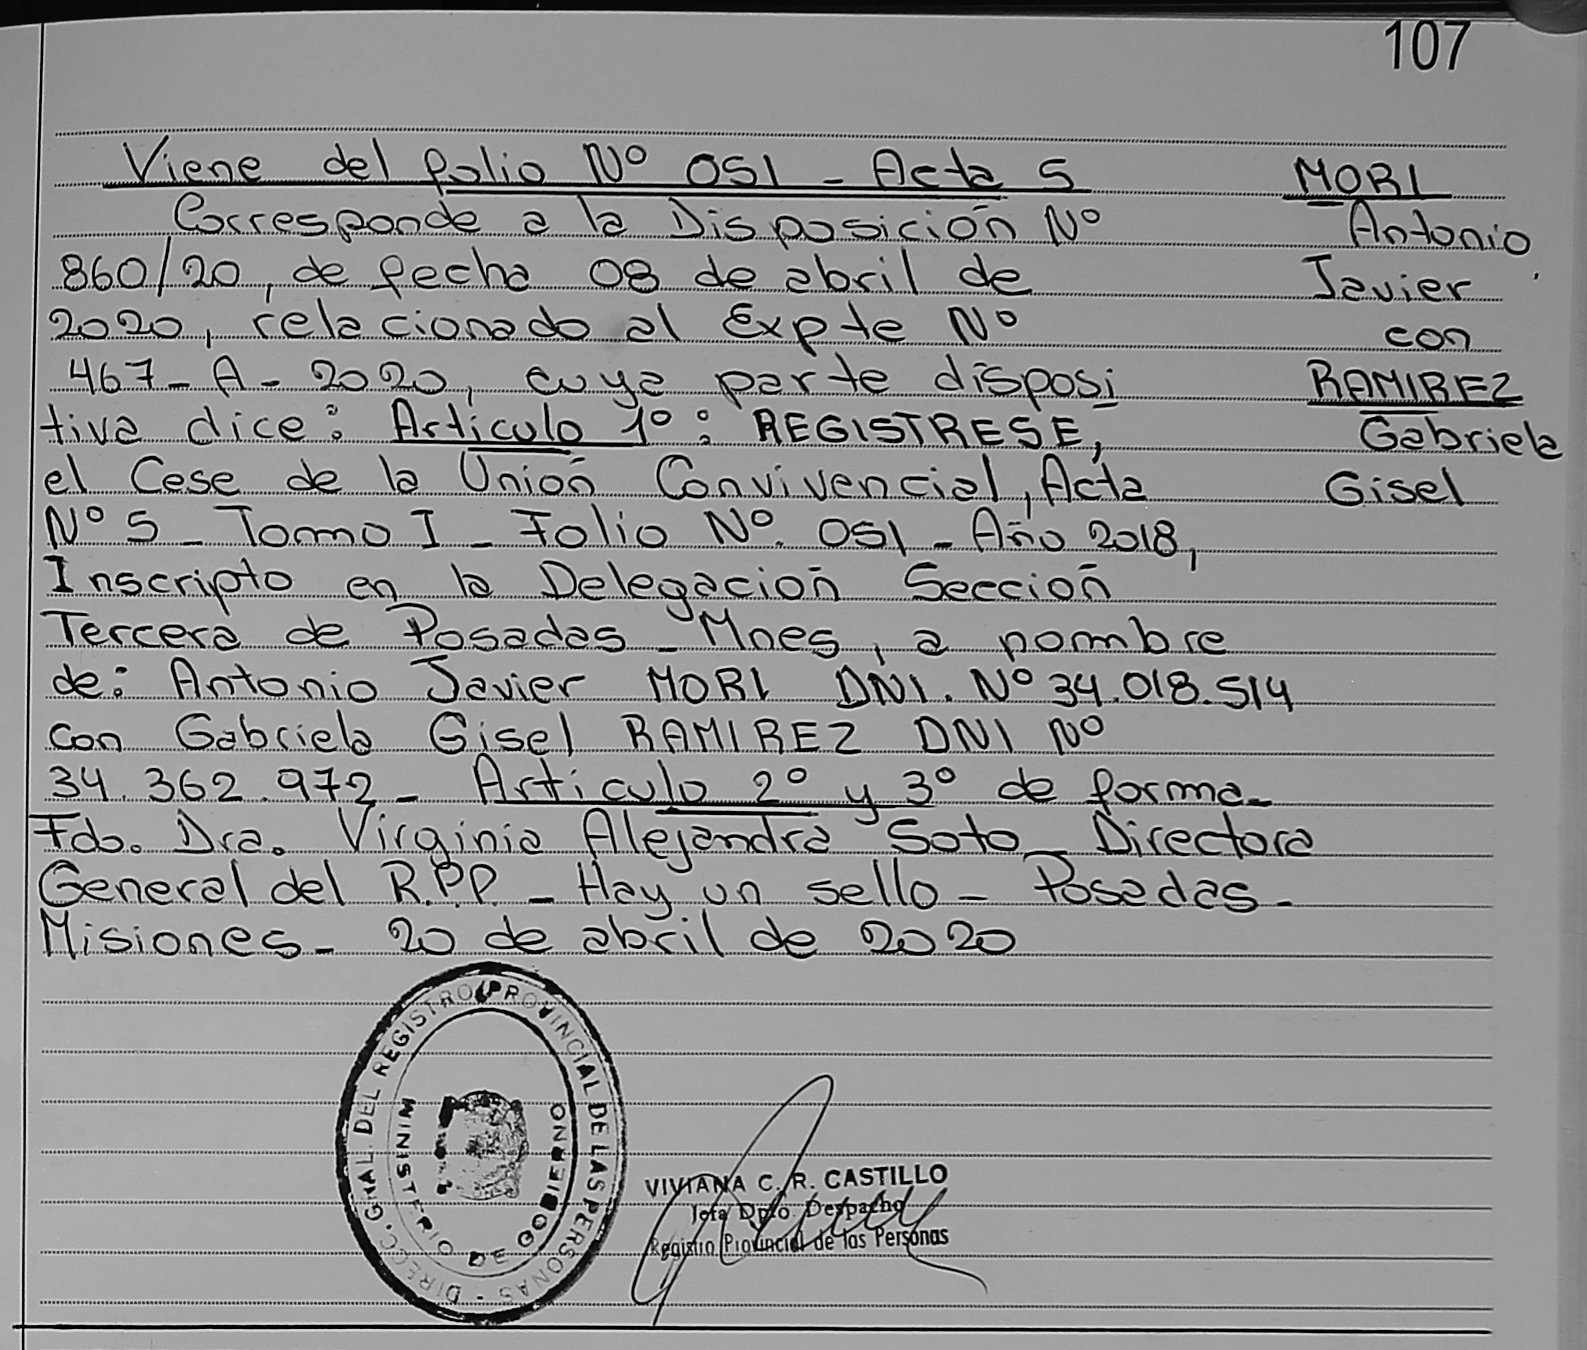 107
Viene del folio Nº 051 - Acta 5
Corresponde a la Disposición Nº
860/20, de fecha 08 de abril de
2020, relacionado al Expte Nº
467-A-2020, cuya parte disposi
tiva dice: Artículo 1º: REGISTRESE,
el Cese de la Unión Convivencial, Acta
Nº 5 - Tomo I - Folio Nº. 051 - Año 2018,
Inscripto en la Delegación Sección
Tercera de Posadas - Mnes, a nombre
de: Antonio Javier MORL DNI. Nº 34.018.514
con Gabriela Gisel RAMIREZ DNI Nº
34.362.972 - Artículo 2º y 3º de forma-
Fdo. Dra. Virginia Alejandra Soto - Directora
General del R.P.P. - Hay un sello - Posadas -
Misiones - 20 de abril de 2020
MORL
Antonio
Javier
con
RAMIREZ
Gabriela
Gisel
DIRECC. GRAL. DEL REGISTRO PROVINCIAL DE LAS PERSONAS -
MINISTERIO DE GOBIERNO
VIVIANA C. R. CASTILLO
Jefa Dpto. Despacho
Registro Provincial de las Personas